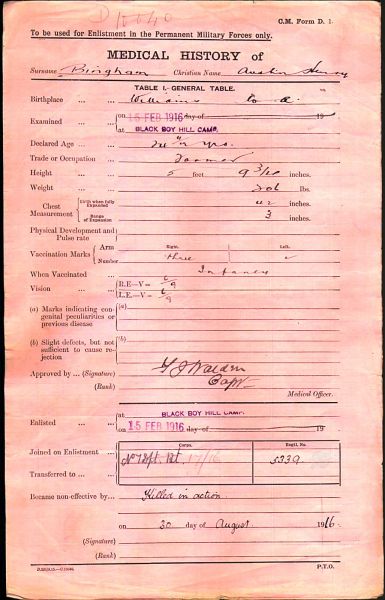 C.M. Form D. 1.
To be used for Enlistment in the Permanent Military Forces only.
MEDICAL HISTORY of
Surname Bingham Christian Name Austin Henry
TABLE I.-GENERAL TABLE.
Birthplace ... ... Williams W. A.
Examined ... ... on 15 FEB 1916 day of 19
at BLACK BOY HILL CAMP.
Declared Age ... ... yrs.
Trade or Occupation ... Farmer
Height ... ... 5 feet 9 3/4 inches.
Weight ... ... lbs.
Chest Measurement Girth when fully Expanded 42 inches.
Range of Expansion 3 inches.
Physical Development and Pulse rate
Vaccination Marks Arm Right. Left.
Number three
When Vaccinated ... Infancy
Vision ... ... R.E—V= 6/9
L.E—V= 6/9
(a) Marks indicating congenital peculiarities or previous disease (a)
(b) Slight defects, but not sufficient to cause rejection (b)
Approved by ... (Signature)
(Rank) Capt
Medical Officer.
Enlisted ... ... at BLACK BOY HILL CAMP.
on 15 FEB 1916 day of 19
Corps. Regtl. No.
Joined on Enlistment ... 17/16 5339
Transferred to ...
Became non-effective by ... Killed in action.
on 30 day of August. 1916.
(Signature)
(Rank)
P.T.O.